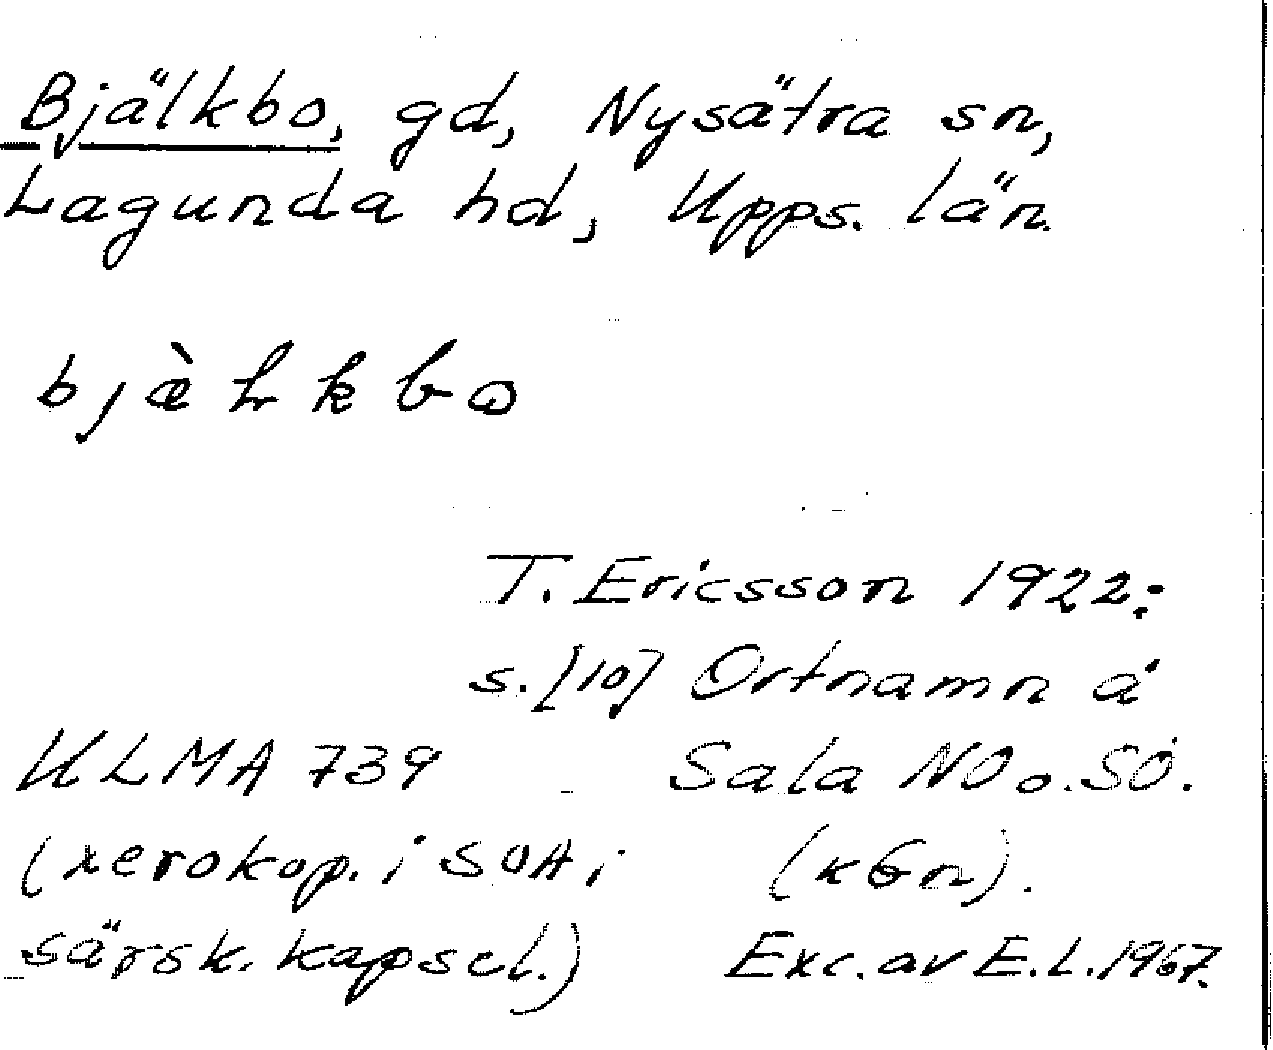 Bjälkbo, gd, Nysätra sn,
Lagunda hd, Upps. län.
T. Ericsson 1922:
s. [10] Ortnamn å
ULMA 739 Sala NO o. SO.
(xerokop. i SOA i (kbn).
särsk. kapsel.) Exc. av E. L. 1967.